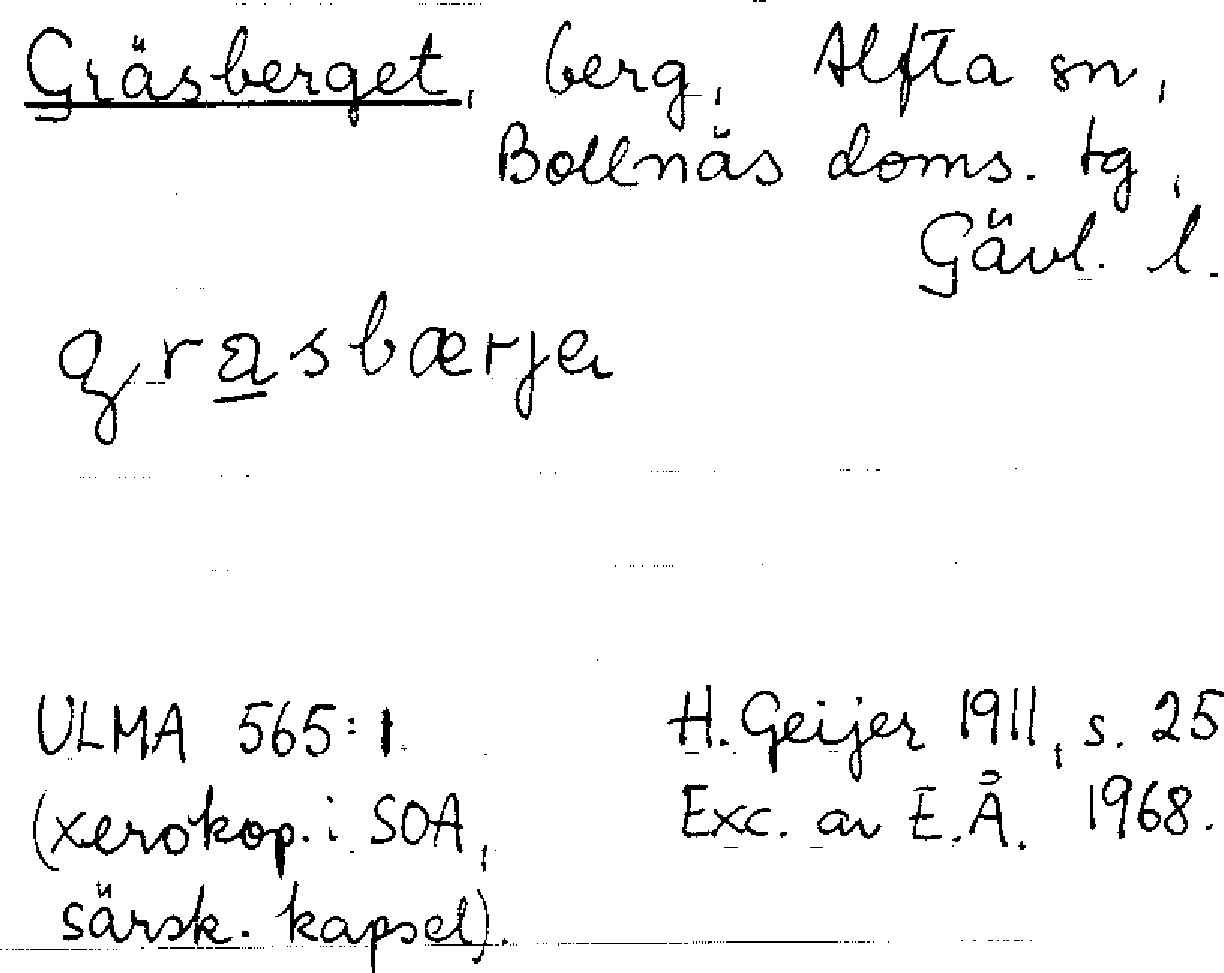 Gräsberget, berg, Alfta sn,
Bollnäs doms. tg,
Gävl. l.
grasbærja
ULMA 565:1
(xerokop. i SOA,
särsk. kapsel).
H. Geijer 1911, s. 25
Exc. av E.Å. 1968.